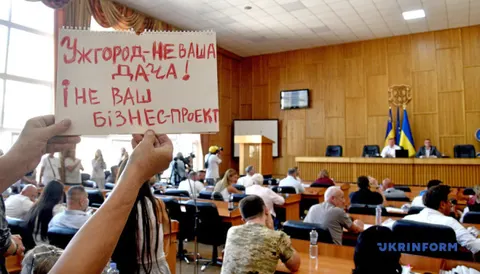 УЖГОРОД-НЕ ВАША
ДАЧА!
І НЕ ВАШ
БІЗНЕС-ПРОЕКТ
UKRINFORM